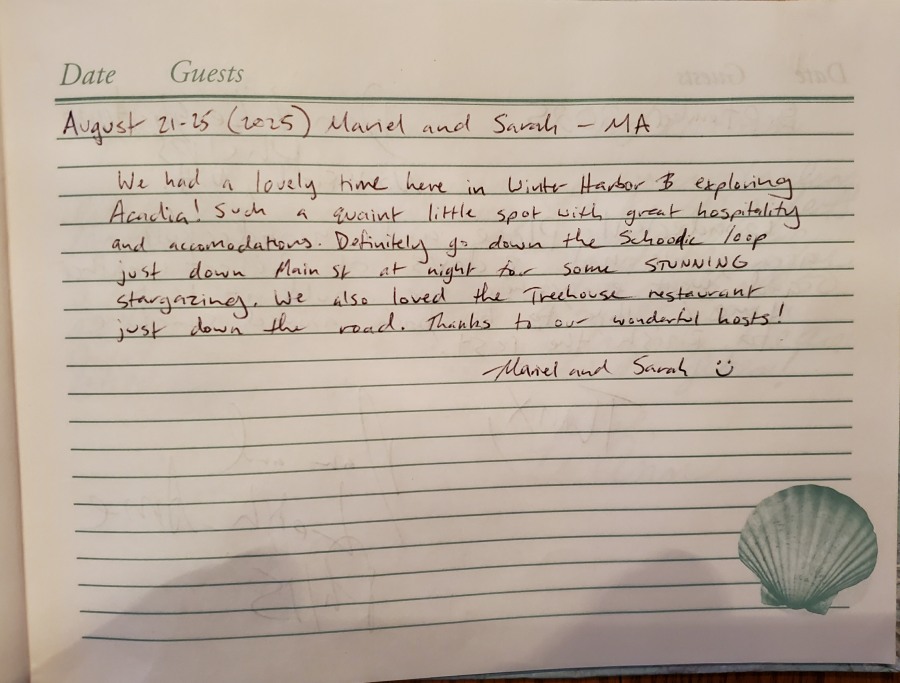 Date Guests
August 21-25 (2025) Mariel and Sarah - MA
We had a lovely time here in Winter Harbor & exploring
Acadia! Such a quaint little spot with great hospitality
and accomodations. Definitely go down the Schoodic loop
just down Main St at night for some STUNNING
stargazing. We also loved the Treehouse restaurant
just down the road. Thanks to our wonderful hosts!
-Mariel and Sarah :)